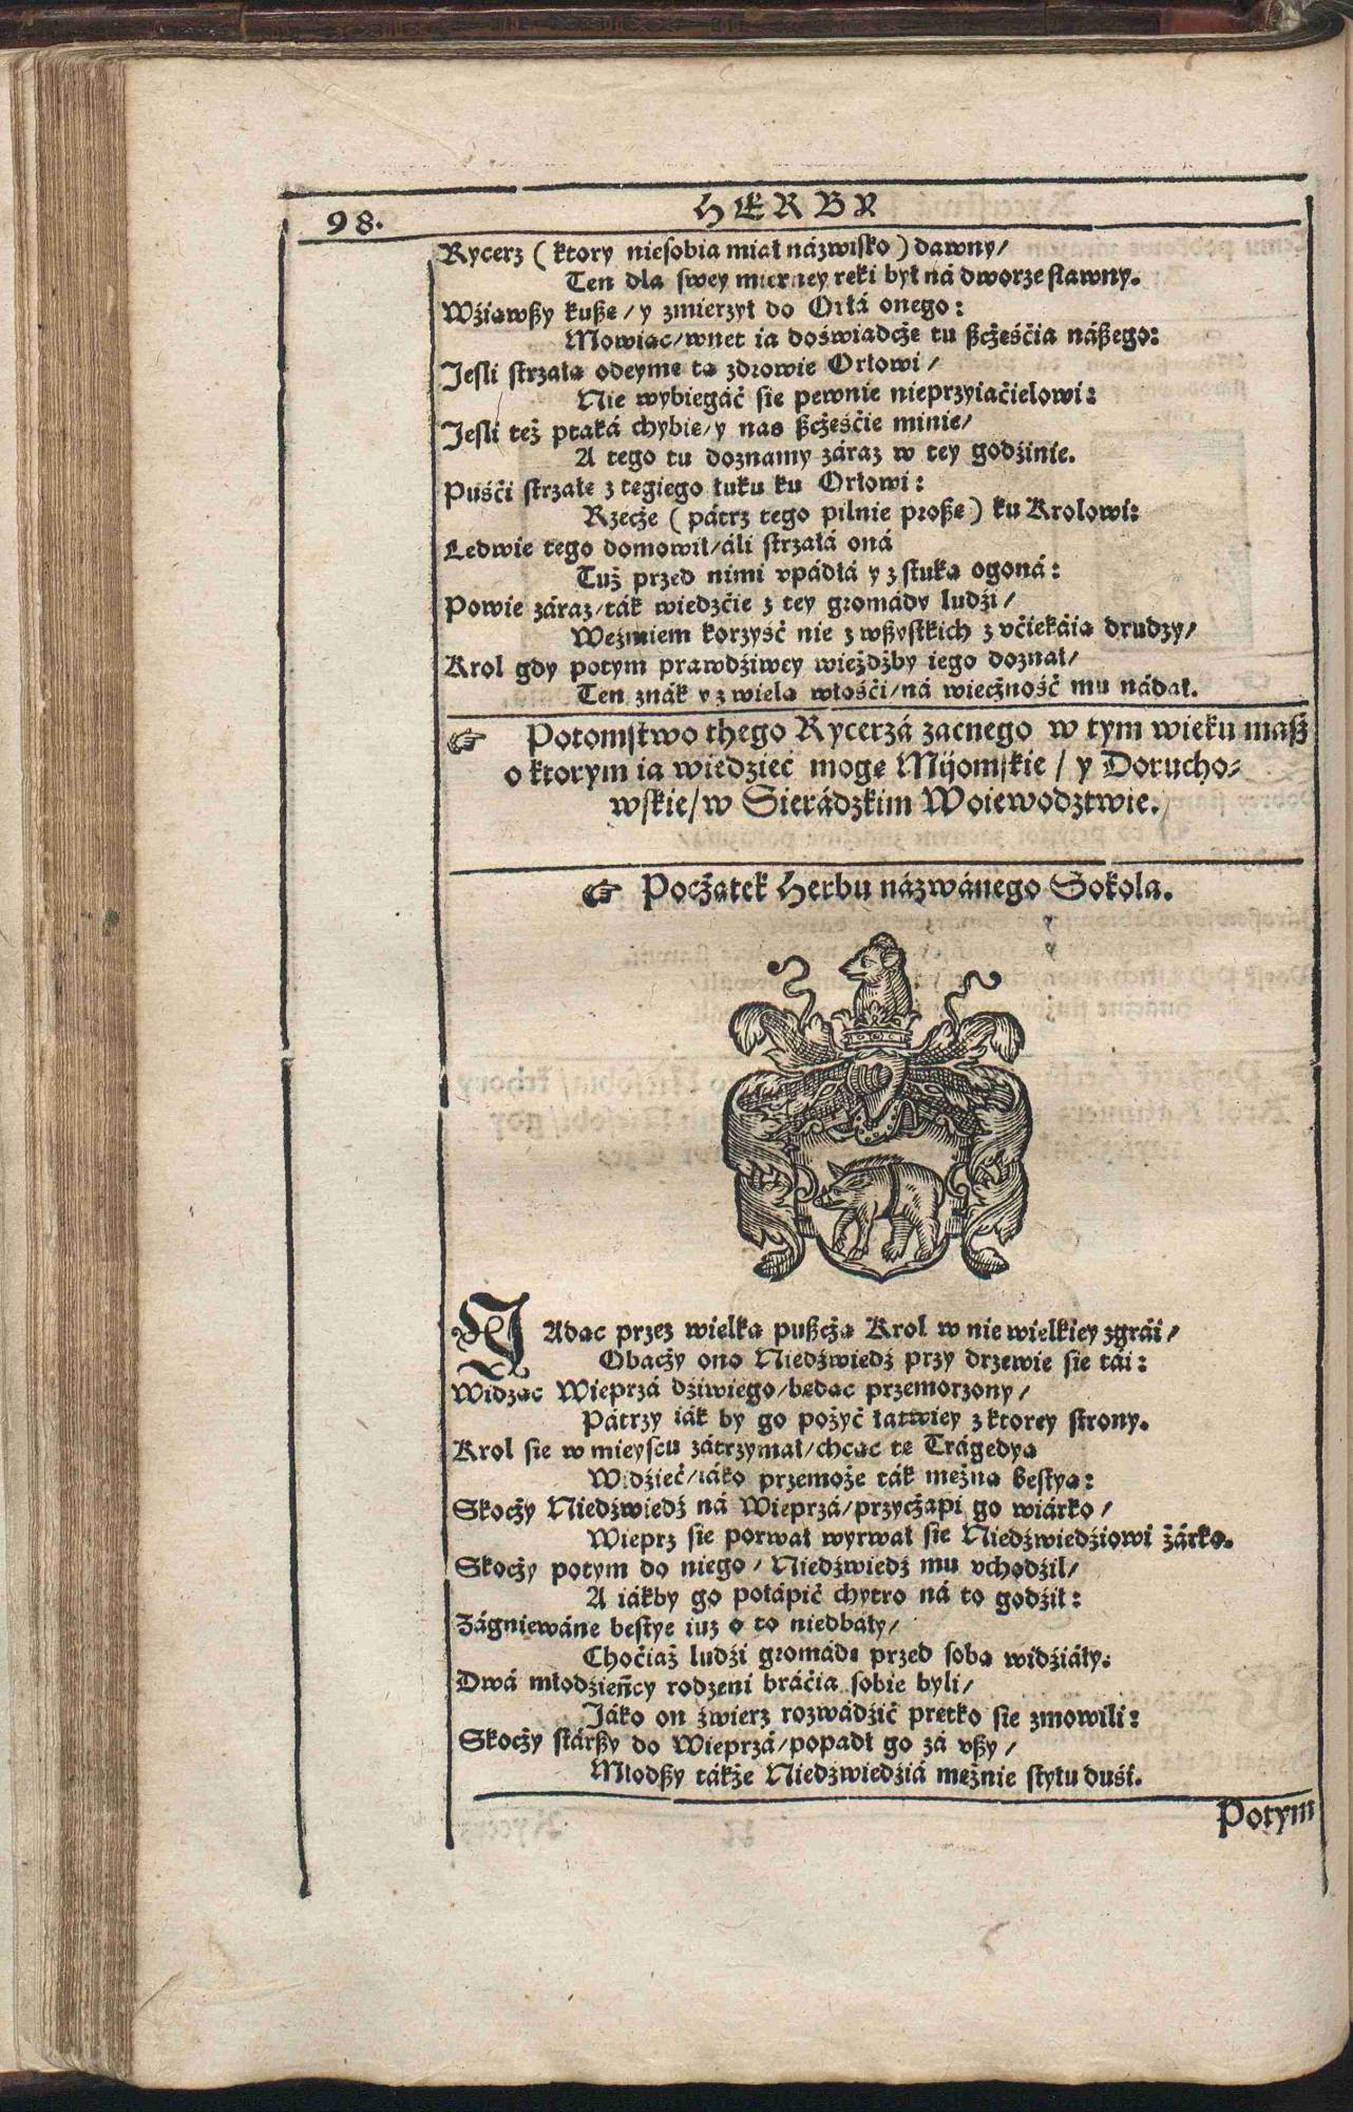 98.
HERBY
Rycerz (ktory niesobia miał názwisko) dawny/
Ten dla swey mierney reki był ná dworze sławny.
Wźiawßy kuße/y zmierzył do Orłá onego:
Mowiac/wnet ia doświadcże tu ßcżeśćia náßego:
Jesli strzała odeyme ta zdrowie Orłowi/
Nie wybiegáć sie pewnie nieprzyiaćielowi:
Jesli też ptaká chybie/y nas ßcżeśćie minie/
A tego tu doznamy záraz w tey godźinie.
Puśći strzałe z tegiego łuku ku Orłowi:
Rzecże (pátrz tego pilnie proße) ku Krolowi:
Ledwie tego domowił/áli strzałá oná
Tuż przed nimi vpádłá y z stuka ogoná:
Powie záraz/ták wiedzćie z tey gromády ludźi/
Weźmiem korzyść nie z wßystkich z vćiekáia drudzy/
Krol gdy potym prawdźiwey wieżdżby iego doznał/
Ten znák y z wiela włośći/ná wiecżność mu nádał.
☞ Potomstwo thego Rycerzá zacnego w tym wieku maß
o ktorym ia wiedzieć moge Mijomskie/y Dorucho-
wskie/w Sierádzkim Woiewodztwie.
☞ Pocżatek Herbu názwánego Sokola.
JAdac przez wielka pußcża Krol w nie wielkiey zgrái/
Obacży ono Niedźwiedź przy drzewie sie tái:
Widzac Wieprzá dźiwiego/bedac przemorzony/
Pátrzy iák by go pożyć łatwiey z ktorey strony.
Krol sie w mieyscu zátrzymał/chcac te Trágedya
Widźieć/iáko przemoże ták meżna bestya:
Skocży Niedźwiedź ná Wieprzá/przycżapi go wiárko/
Wieprz sie porwał wyrwał sie Niedźwiedźiowi żárko.
Skocży potym do niego/Niedźwiedź mu vchodźil/
A iákby go połápić chytro ná to godźił:
Zágniewáne bestye iuz o to niedbáły/
Choćiaż ludźi gromáde przed soba widźiáły.
Dwá młodzieńcy rodzeni bráćia sobie byli/
Jáko on źwierz rozwádźić pretko sie zmowili:
Skocży stárßy do Wieprzá/popadł go zá vßy/
Młodßy tákże Niedźwiedźiá meżnie styłu duśi.
Potym